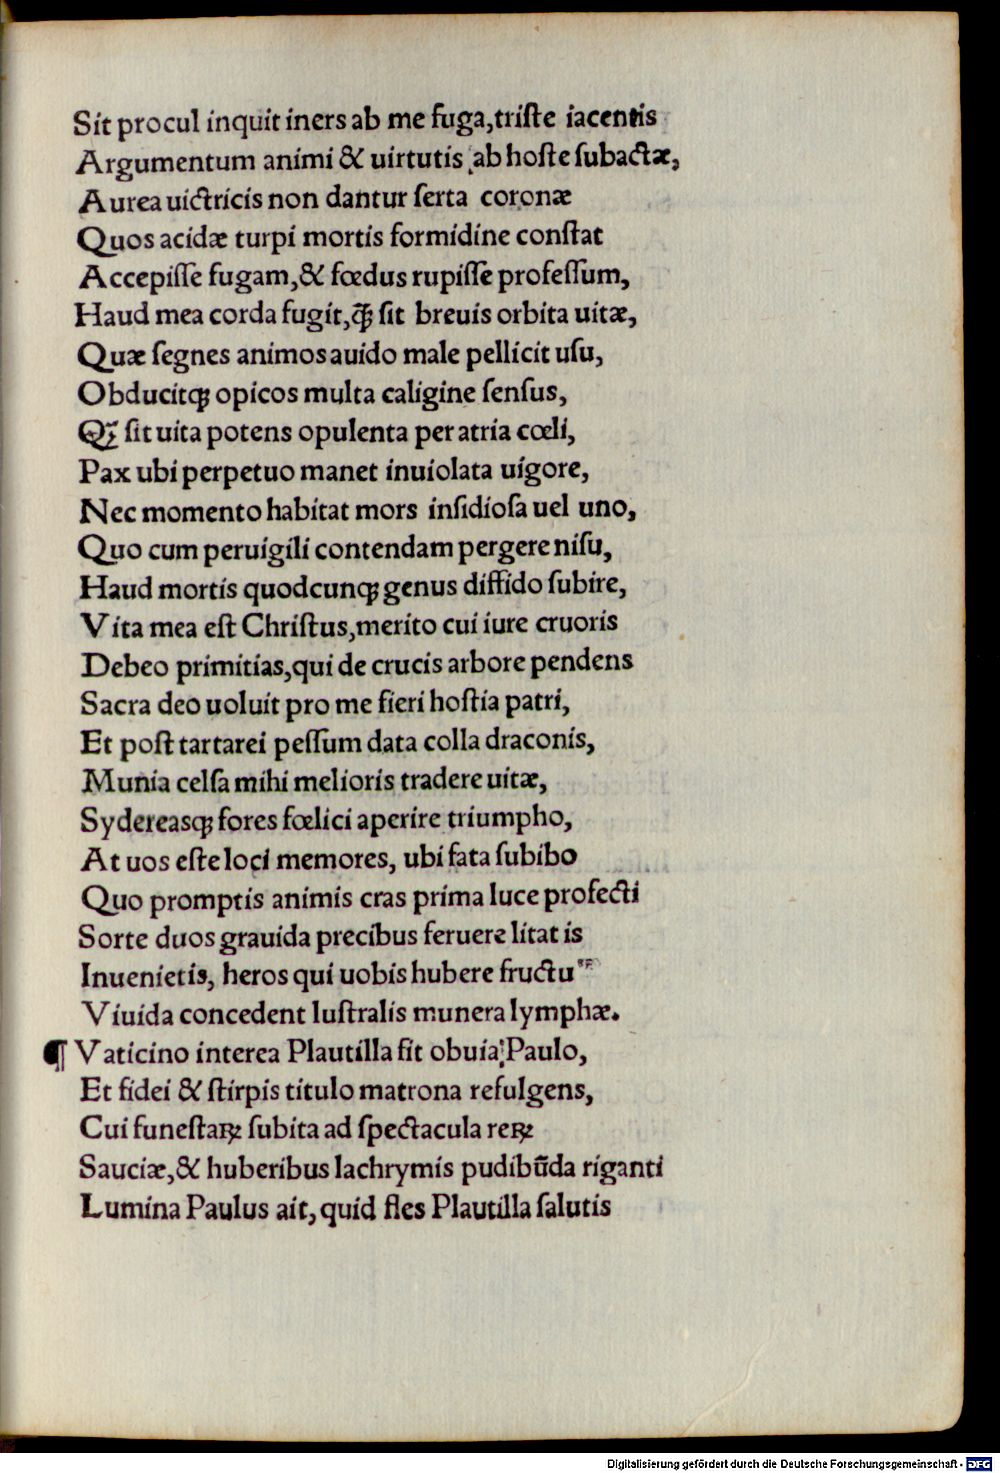 Sit procul inquit iners ab me fuga,triſte iacentis
Argumentum animi & uirtutis ab hoſte ſubactæ,
Aurea uictricis non dantur ſerta coronæ
Quos acidæ turpi mortis formidine conſtat
Accepiſſe fugam,& fœdus rupiſſe profeſſum,
Haud mea corda fugit,q̃ꝫ ſit breuis orbita uitæ,
Quæ ſegnes animos auido male pellicit uſu,
Obducitqꝫ opicos multa caligine ſenſus,
Qꝫ ſit uita potens opulenta per atria cœli,
Pax ubi perpetuo manet inuiolata uigore,
Nec momento habitat mors inſidioſa uel uno,
Quo cum peruigili contendam pergere niſu,
Haud mortis quodcunqꝫ genus diffido ſubire,
Vita mea eſt Chriſtus,merito cui iure cruoris
Debeo primitias,qui de crucis arbore pendens
Sacra deo uoluit pro me fieri hoſtia patri,
Et poſt tartarei peſſum data colla draconis,
Munia celſa mihi melioris tradere uitæ,
Sydereasqꝫ fores fœlici aperire triumpho,
At uos eſte loci memores, ubi fata ſubibo
Quo promptis animis cras prima luce profecti
Sorte duos grauida precibus feruere litatis
Inuenietis, heros qui uobis hubere fructu
Viuida concedent luſtralis munera lymphæ.
¶ Vaticino interea Plautilla fit obuia Paulo,
Et fidei & ſtirpis titulo matrona refulgens,
Cui funeſtaꝝ ſubita ad ſpectacula reꝝ
Sauciæ,& huberibus lachrymis pudibūda riganti
Lumina Paulus ait, quid fles Plautilla ſalutis
Digitalisierung gefördert durch die Deutsche Forschungsgemeinschaft - DFG